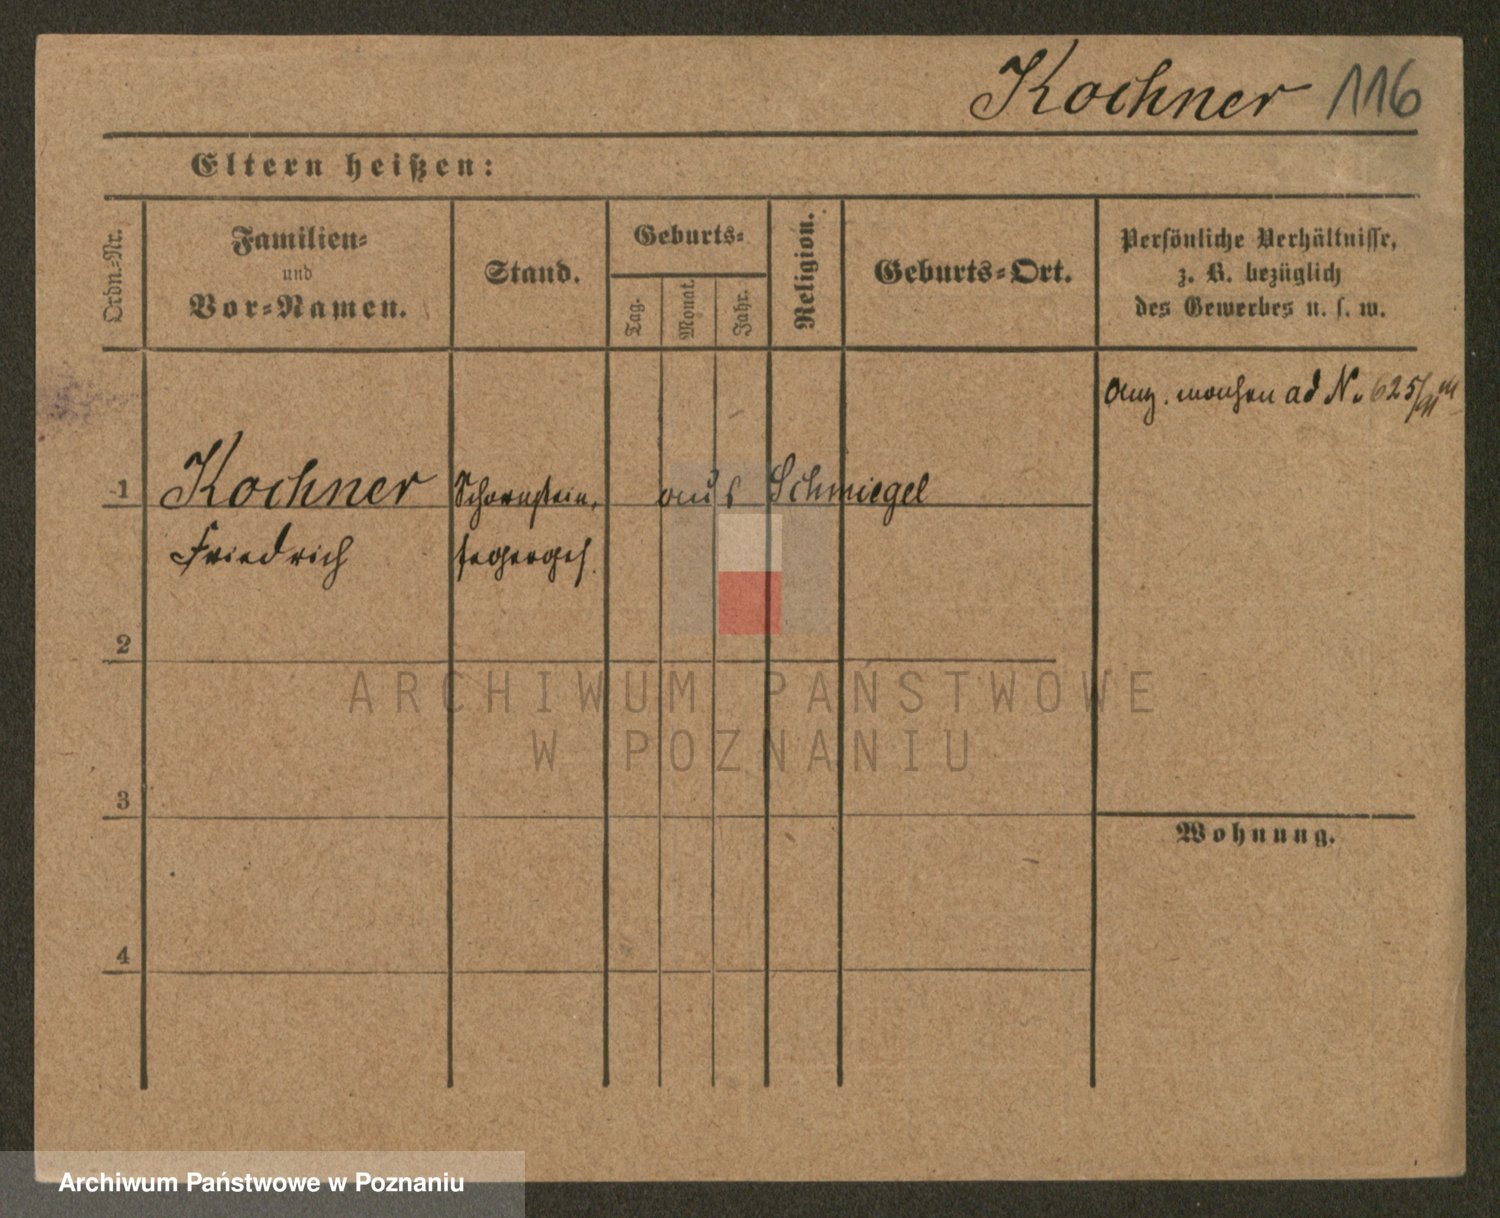 Kochner 116
Eltern heißen:
Ordn.-Nr.
Familien-
und
Vor-Namen.
Stand.
Geburts-
Tag.
Monat.
Jahr.
Religion.
Geburts-Ort.
Persönliche Verhältnisse,
z. B. bezüglich
des Gewerbes u. s. w.
ad N. 625/
1 Kochner Schornstein, aus Schmiegel
Friedrich fegerges.
2
3
4
Wohnung.
ARCHIWUM PAŃSTWOWE
W POZNANIU
Archiwum Państwowe w Poznaniu